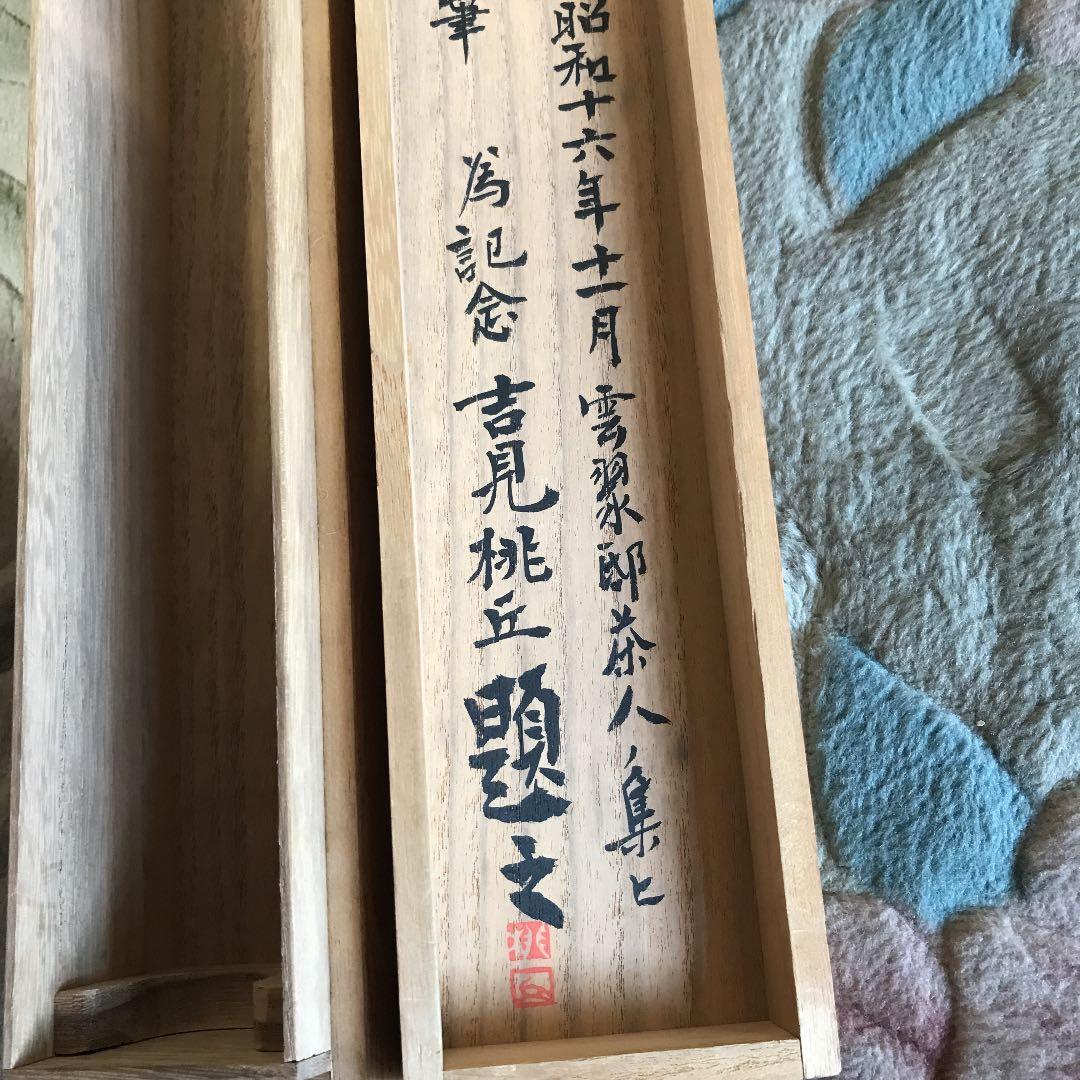 昭和十六年十一月雲翠邸茶人ノ集ヒ
筆 為記念 吉見桃丘題之
桃丘